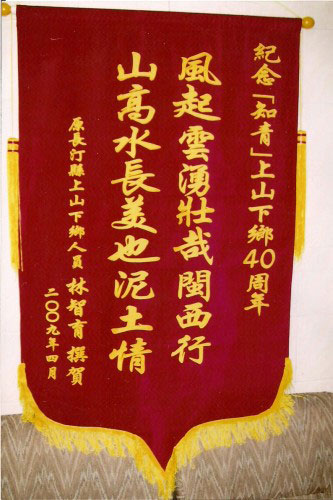 紀念「知青」上山下鄉40周年
風起雲湧壯哉閩西行
山高水長美也泥土情
原長汀縣上山下鄉人員 林智育 撰賀
二〇〇九年四月